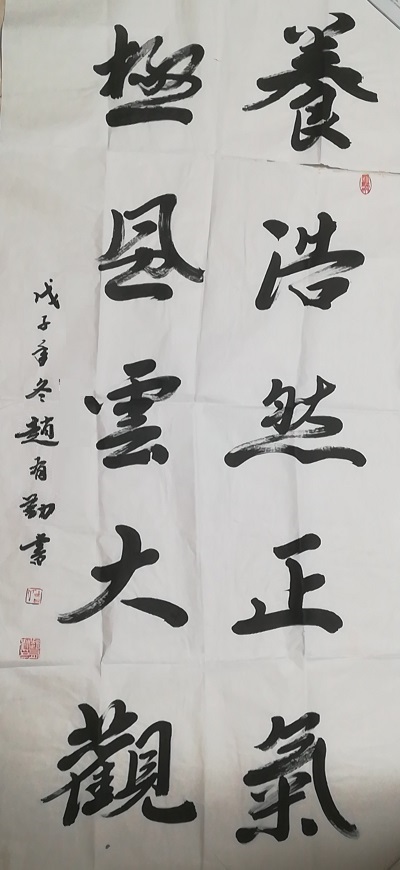 養浩然正氣
極風雲大觀
戊子年冬趙有勤書